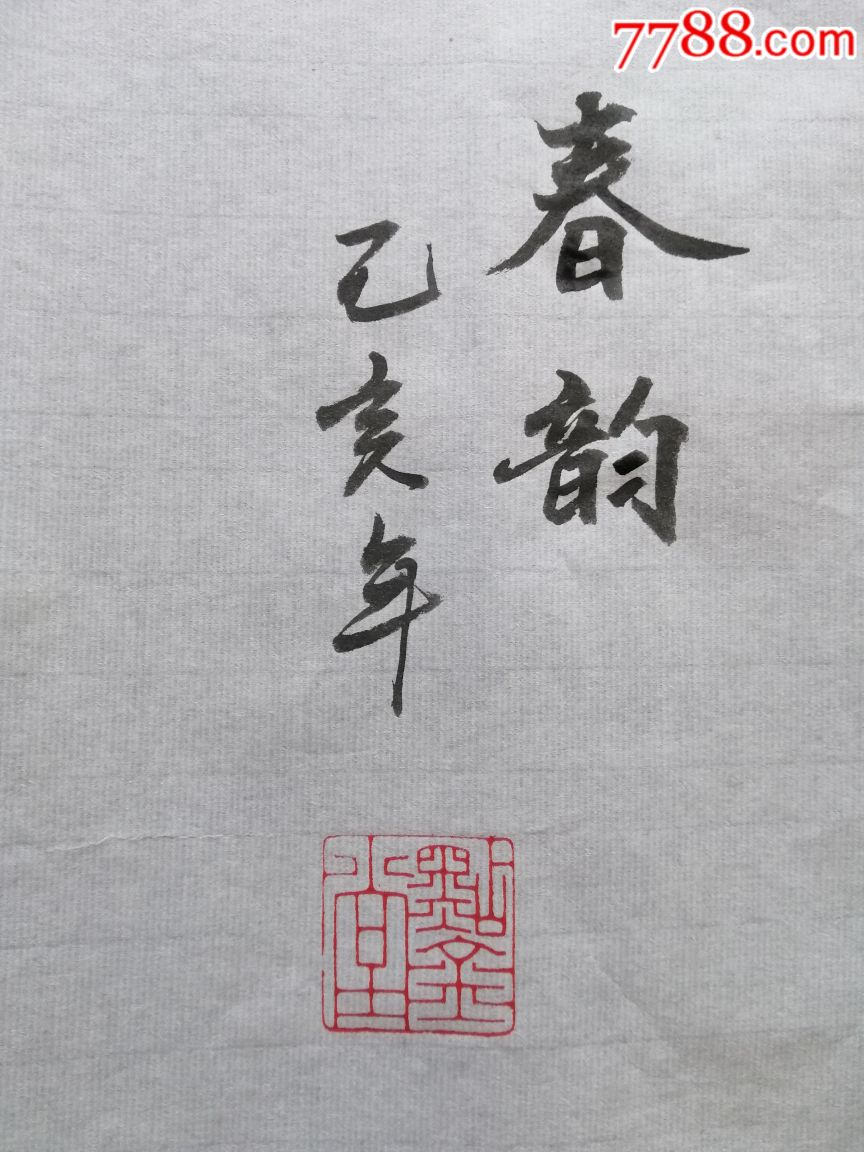 7788.com
春韵
己亥年